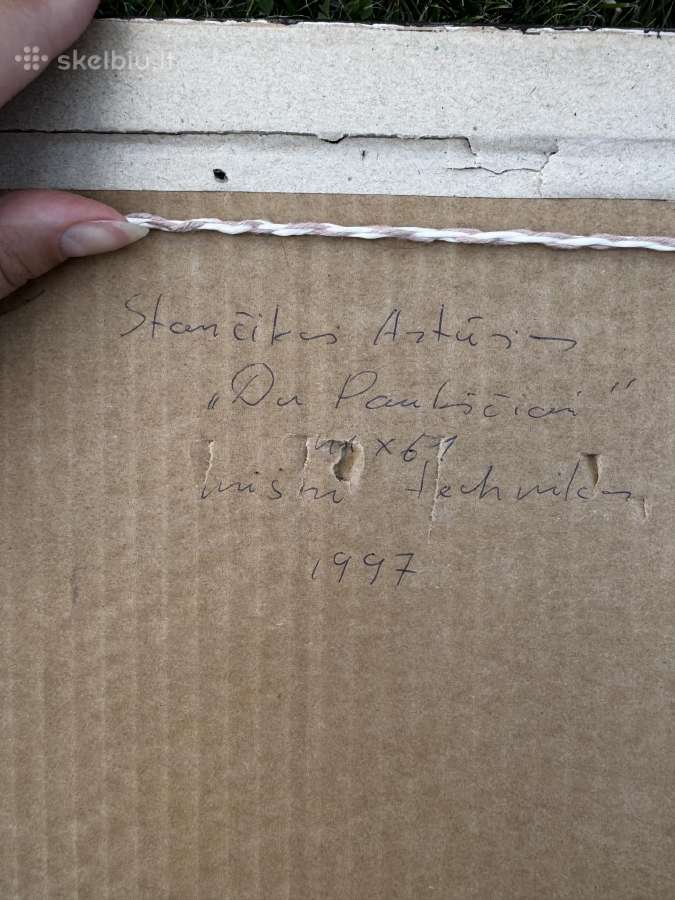 skelbiu.lt
Stančikas Artūras
„Du Paukščiai"
x61
mišri technika
1997